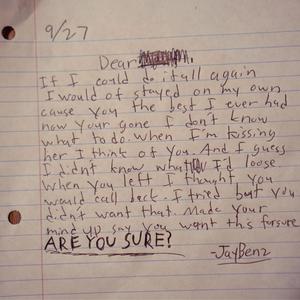 9/27
Dear
If I could do it all again
I would of stayed on my own
cause you the best I ever had
now your gone I don't know
what to do. when I'm kissing
her I think of you. And I guess
I didnt know what I'd loose
When you left I thought you
would call back. I tried but you
didn't want that. Made your
mind up say you want this forsure
ARE YOU SURE?
-JayBenz